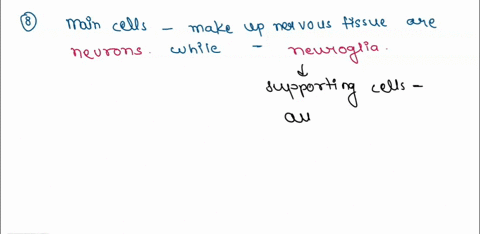 ⑧ main cells - make up nervous tissue are
neurons. while - neuroglia.
↓
supporting cells -
au